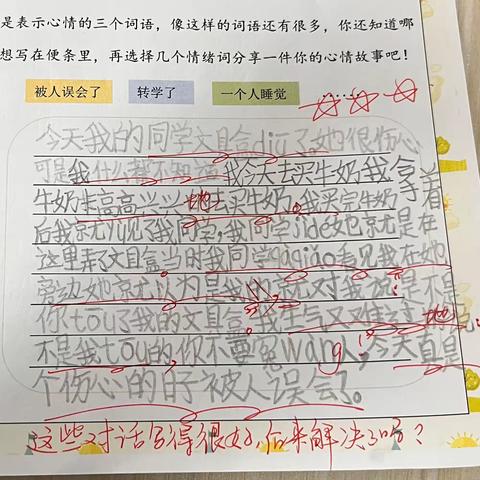 是表示心情的三个词语，像这样的词语还有很多，你还知道哪
想写在便条里，再选择几个情绪词分享一件你的心情故事吧！
被人误会了 转学了 一个人睡觉 ……
今天我的同学文具盒diū了她很伤心
可是我什么都不知道我今天去买牛奶我拿着
牛奶非高高兴兴地去买牛奶。我买完牛奶
后我就叽见了我同学，我同学jìde她也就是在
这里弄了文具盒当时我同学qàqiǎo看见我在她
旁边她就以为是我 就对我说是不是
你tōu了我的文具盒。我生气又对她说
不是我tōu的，你不要冤wang，今天真是
个伤心的日子被人误会了。
这些对话写得很好，后来解决了吗？